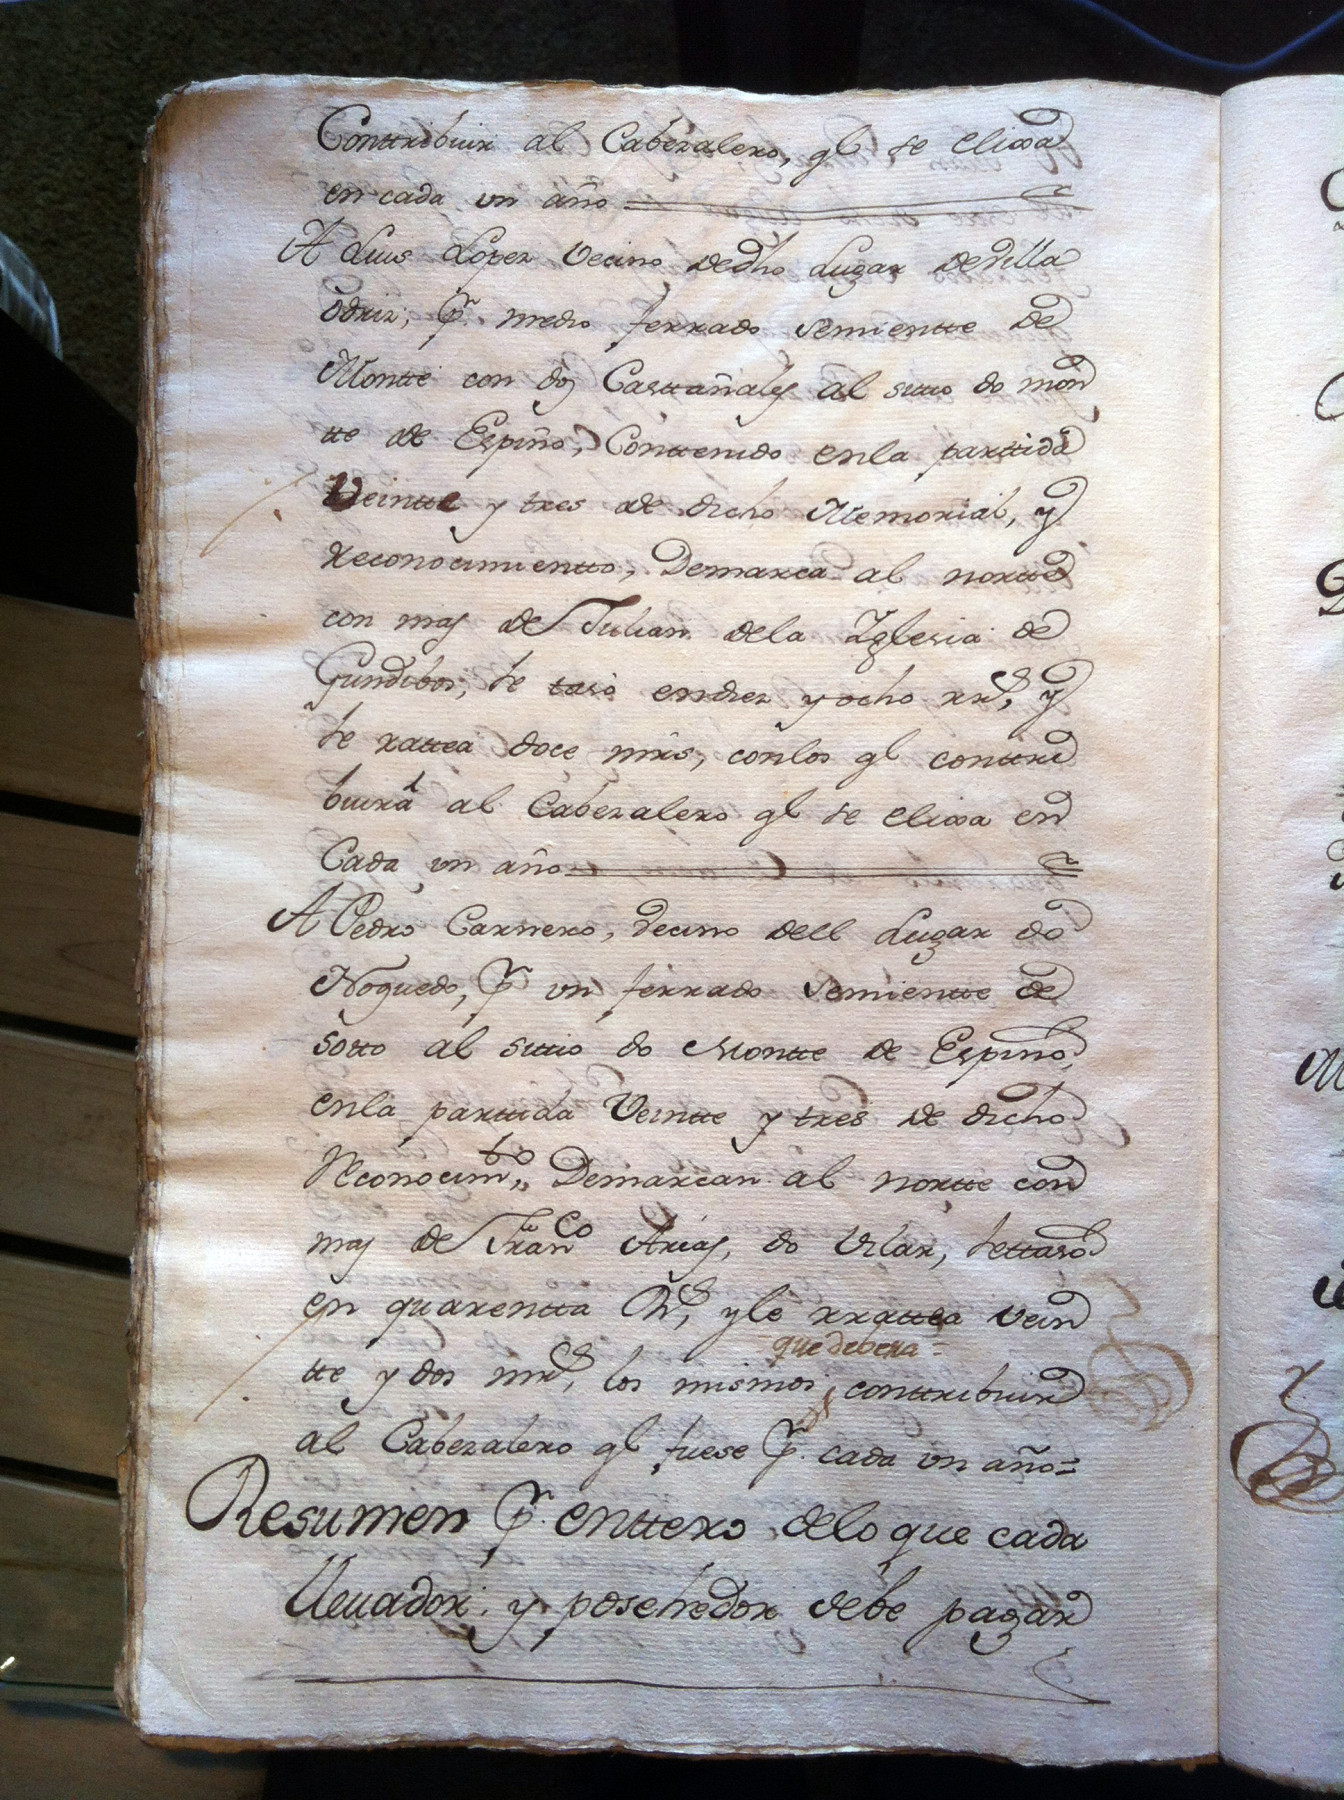 Conttribuir al Cabezalero, ql se elixa
en cada un año
A Luis Lopez Vecino dedho Lugar de Villa
odriz, pr medio ferrado semientte de
Montte con dos Casttañales al sittio do mon
tte de Espiño, Conttenido enla parttida
Veintte y tres de dicho Memorial, y
Reconocimientto, Demarca al nortte
con mas de Julian dela Yglesia de
Gundibos, se taso endiez y ocho rrs, y
se rattea doce mrs, conlos ql conttri
buirá al Cabezalero ql se elixa en
Cada un año
A Pedro Carnero, Vecino dell Lugar do
Noguedo, pr un ferrado Semientte de
Sotto al sittio do Montte de Espiño,
enla parttida Veintte y tres de dicho
Reconocimto, Demarcan al nortte con
mas de Franco Arias, do Vilar, settaso
en quarentta Rs, yle rrattea Vein
que debera =
tte y dos mrs, los mismos conttribuir
al Cabezalero ql fuese pr cada un año=
Resumen pr enttero delo que cada
Lleuador y posehedor debe pagar